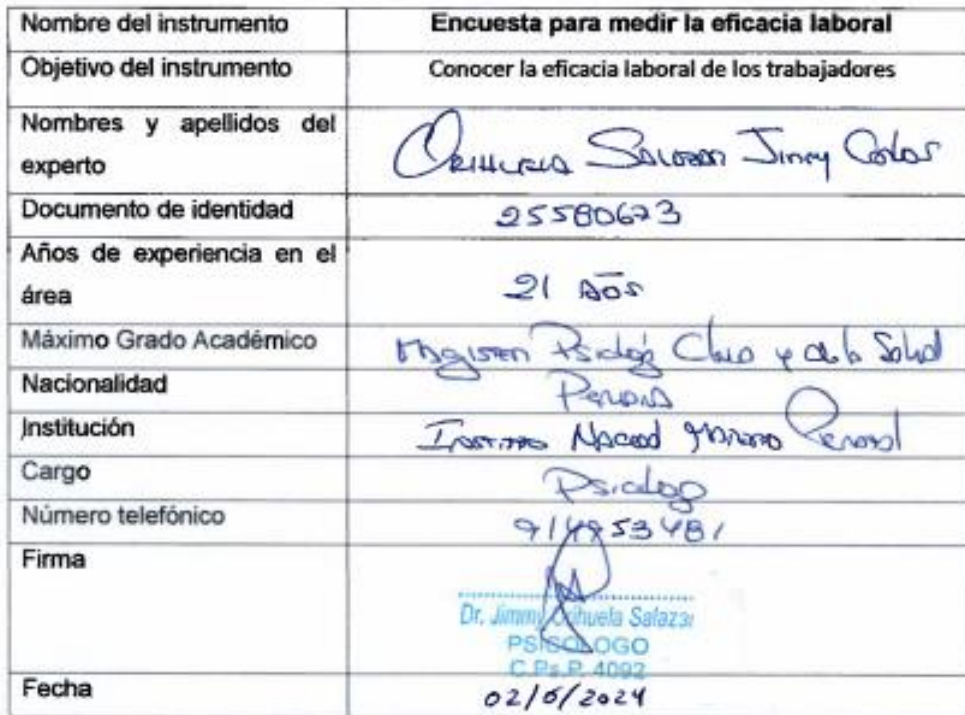 Nombre del instrumento Encuesta para medir la eficacia laboral
Objetivo del instrumento Conocer la eficacia laboral de los trabajadores
Nombres y apellidos del
experto Orihuela Salazar Jimmy Carlos
Documento de identidad 25580673
Años de experiencia en el
área 21 años
Máximo Grado Académico Magister Psicolog y de la Salud
Nacionalidad Peruana
Institución Instituto Nacional Materno Perinatal
Cargo Psicologo
Número telefónico 914953481
Firma
Dr. Jimmy Orihuela Salazar
PSICOLOGO
C.Ps.P. 4092
Fecha 02/6/2024